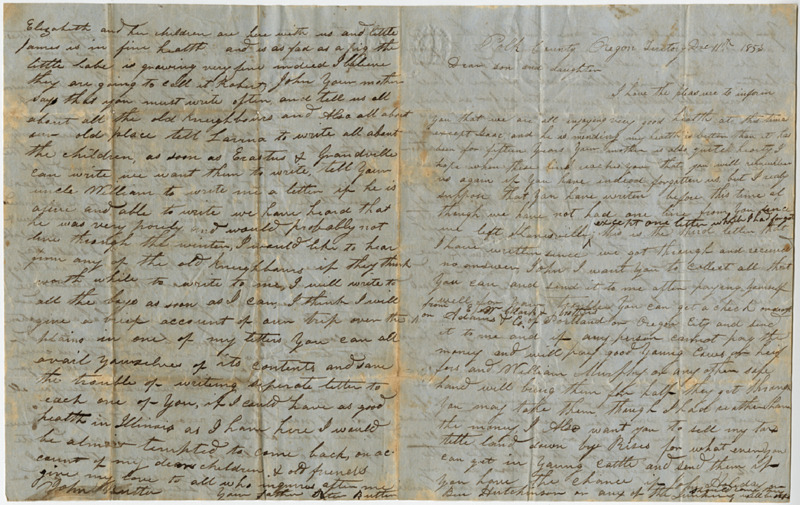 Polk County, Oregon Teritory Dec 11th 1853
Dear son and daughter
I have the pleasure to inform
you that we are all enjoying very good health at this time
except Isac and he is mending my health is better than it has
been for fifteen years Your mother is also quite hearty I
hope when these lines reaches you that you will remember
us again if you have indeed forgotten us but I really
suppose that you have written before this time al
though we have not had one line from you since
we left except one letter which I had forgot this is the third letter that
I have written since we got through and received
no answer, John I want you to collect all that
you can and send it to me after paying yourself
well for your trouble You can get a check
from E. W. Clark & brothers
on Adams & Co. of Portland or Oregon City and send
it to me and if any person cannot pay the
money and will pay good young Cows or heif
fers and William Murphy or any other safe
hand will bring them for half they get through
you may take them, though I had rather have
the money I Also want you to sell my tax
title land down by Blises for what ever you
can get in young cattle and send them if
you have the chance if John
Ben Hutchinson or any of the
Elizabeth and her children are here with us and little
James is in fine health and is as fat as a pig the
little babe is growing very fine indeed I believe
they are going to call it Robert, John Your mother
says that you must write often, and tell us all
about all the old kneighbours and Also all about
our old place tell Larina to write all about
the children, as soon as Erastus & Grandville
can write we want them to write, tell Your
uncle William to write me a letter if he is
alive and able to write we have heard that
he was very poorly and would probably not
live through the winter, I would like to hear
from any of the old kneighbours if they think
worth while to write to me, I will write to
all the boys as soon as I can, I think I will
give a brief account of our trip over the
plains in one of my letters You can all
avail yourselves of its contents and save
the trouble of writing seperate letter to
each one of You, if I could have as good
health in Illinois as I have here I would
be almost tempted to come back, on ac-
count of my dear children, & old friends
give my love to all who inquires after me
John Butler Your father Peter Butler